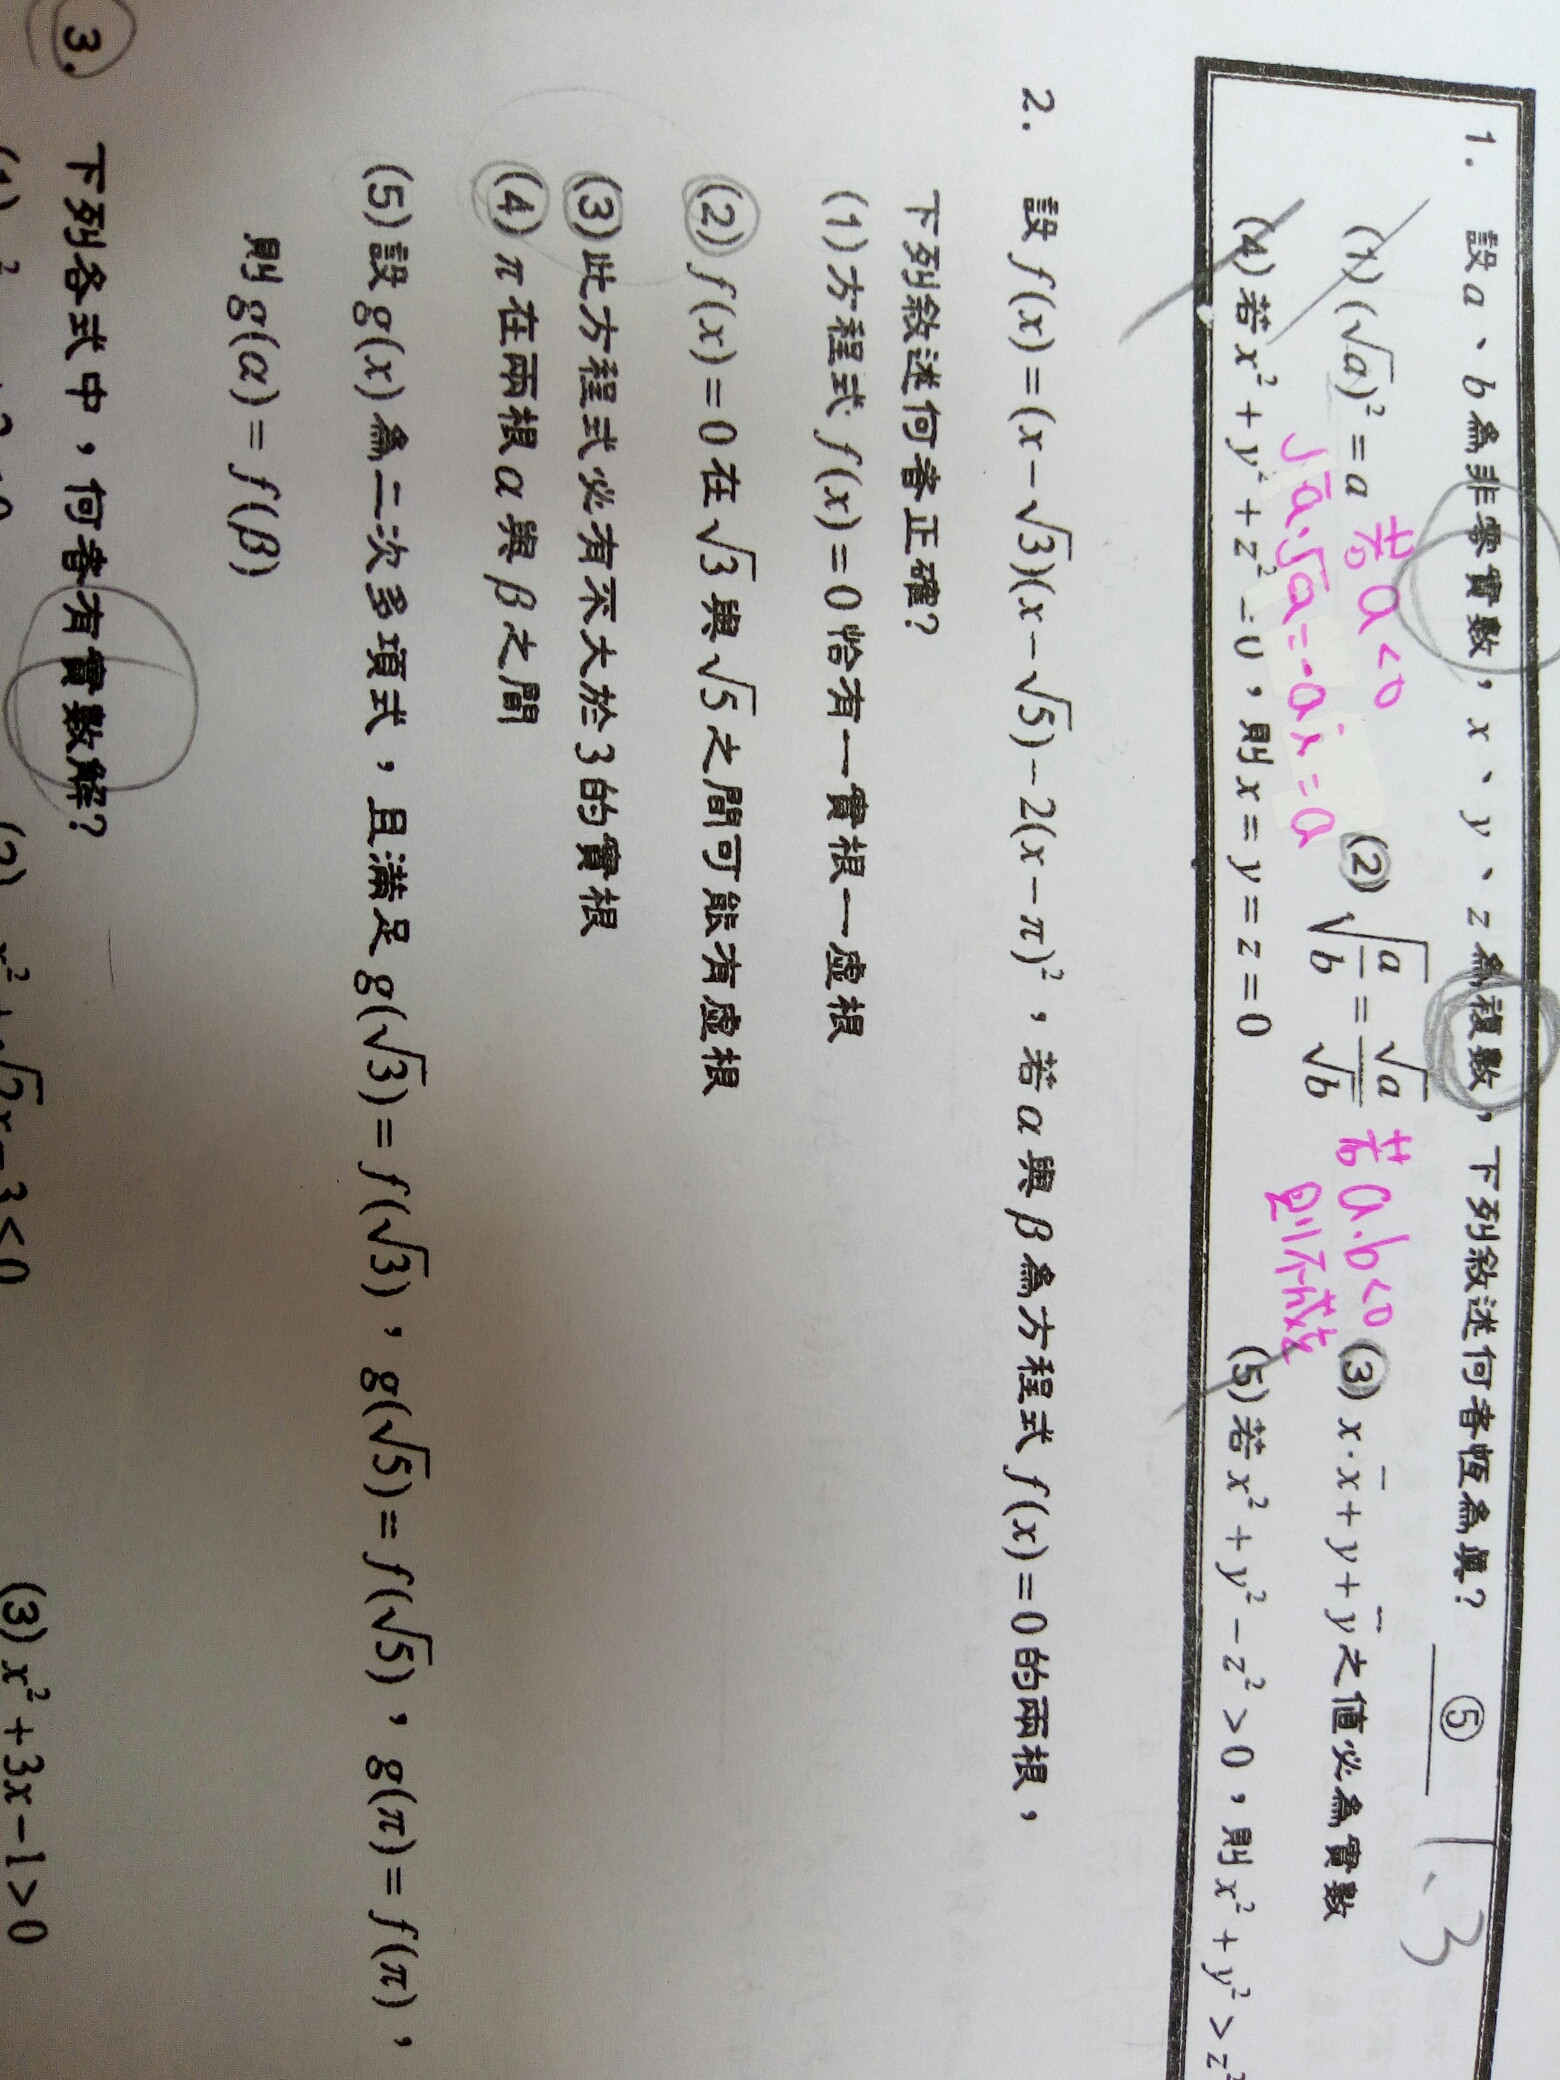 1. 設a、b為非零實數，x、y、z為複數，下列敘述何者恆為真？ ⑤ 1、3
(1) (√a)² = a (2) √(a/b) = √a/√b (3) x·x̄+y+ȳ之值必為實數
若 a<0
√a·√a=-a i=a
若 a·b<0
則不成立
(4) 若x²+y²+z²=0，則x=y=z=0 (5) 若x²+y²−z²>0，則x²+y²>z²
2. 設f(x)=(x−√3)(x−√5)−2(x−π)²，若α與β為方程式f(x)=0的兩根，
下列敘述何者正確？
(1) 方程式f(x)=0恰有一實根一虛根
(2) f(x)=0在√3與√5之間可能有虛根
(3) 此方程式必有不大於3的實根
(4) π在兩根α與β之間
(5) 設g(x)為二次多項式，且滿足g(√3)=f(√3)，g(√5)=f(√5)，g(π)=f(π)，
則g(α)=f(β)
3. 下列各式中，何者有實數解？
(3) x²+3x−1>0